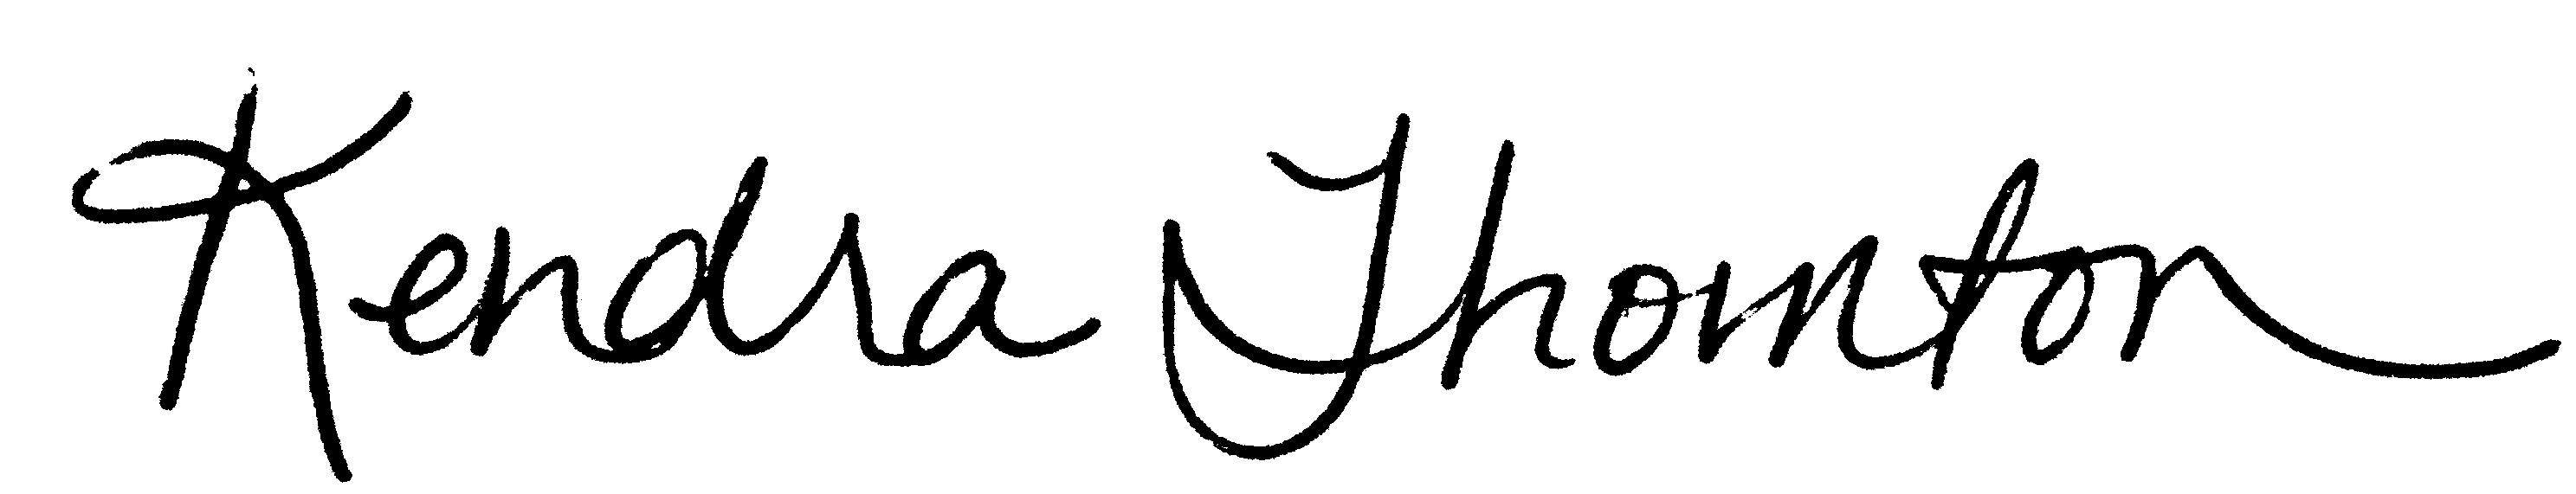 Kendra Thornton